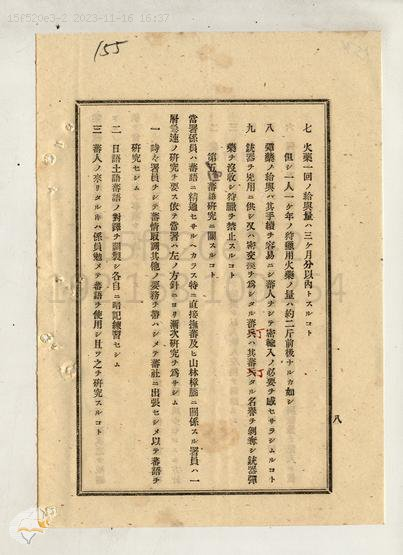 15f520e3-2.2023-11-16 16:37
155
七 火藥一回ノ給與量ハ三ケ月分以內トスルコト
但シ一人一ケ年ノ狩獵用火藥ノ量ハ約二斤前後ナルカ如シ
八 彈藥ノ給與ハ其手續チ容易ニシ蕃人チシテ密輸入ノ必要チ感セサラシムルコト
九 銃器チ兇用ニ供シ又ハ密交換チ爲シタル蕃丁ハ其蕃丁タル名譽チ剝奪シ銃器彈
藥チ沒收シ狩獵チ禁止スルコト
蕃語硏究ニ關スルコト
當署係員ハ蕃語ニ精通セサルヘカラス特ニ直接撫蕃及ヒ山林樟腦ニ關係スル署員ハ一
層急速ノ硏究チ要ス依テ當署ハ左ノ方針ニヨリ漸次硏究チ爲サシム
一 時々署員チシテ蕃情取調其他ノ要務チ帶ハシメテ蕃社ニ出張セシメ以テ蕃語チ
硏究セシム
二 日語土語蕃語ノ對譯チ調製シ各自ニ暗記練習セシム
三 蕃人ノ來リタルトキハ係員勉メテ蕃語チ使用シ且ツ之チ硏究スルコト
八